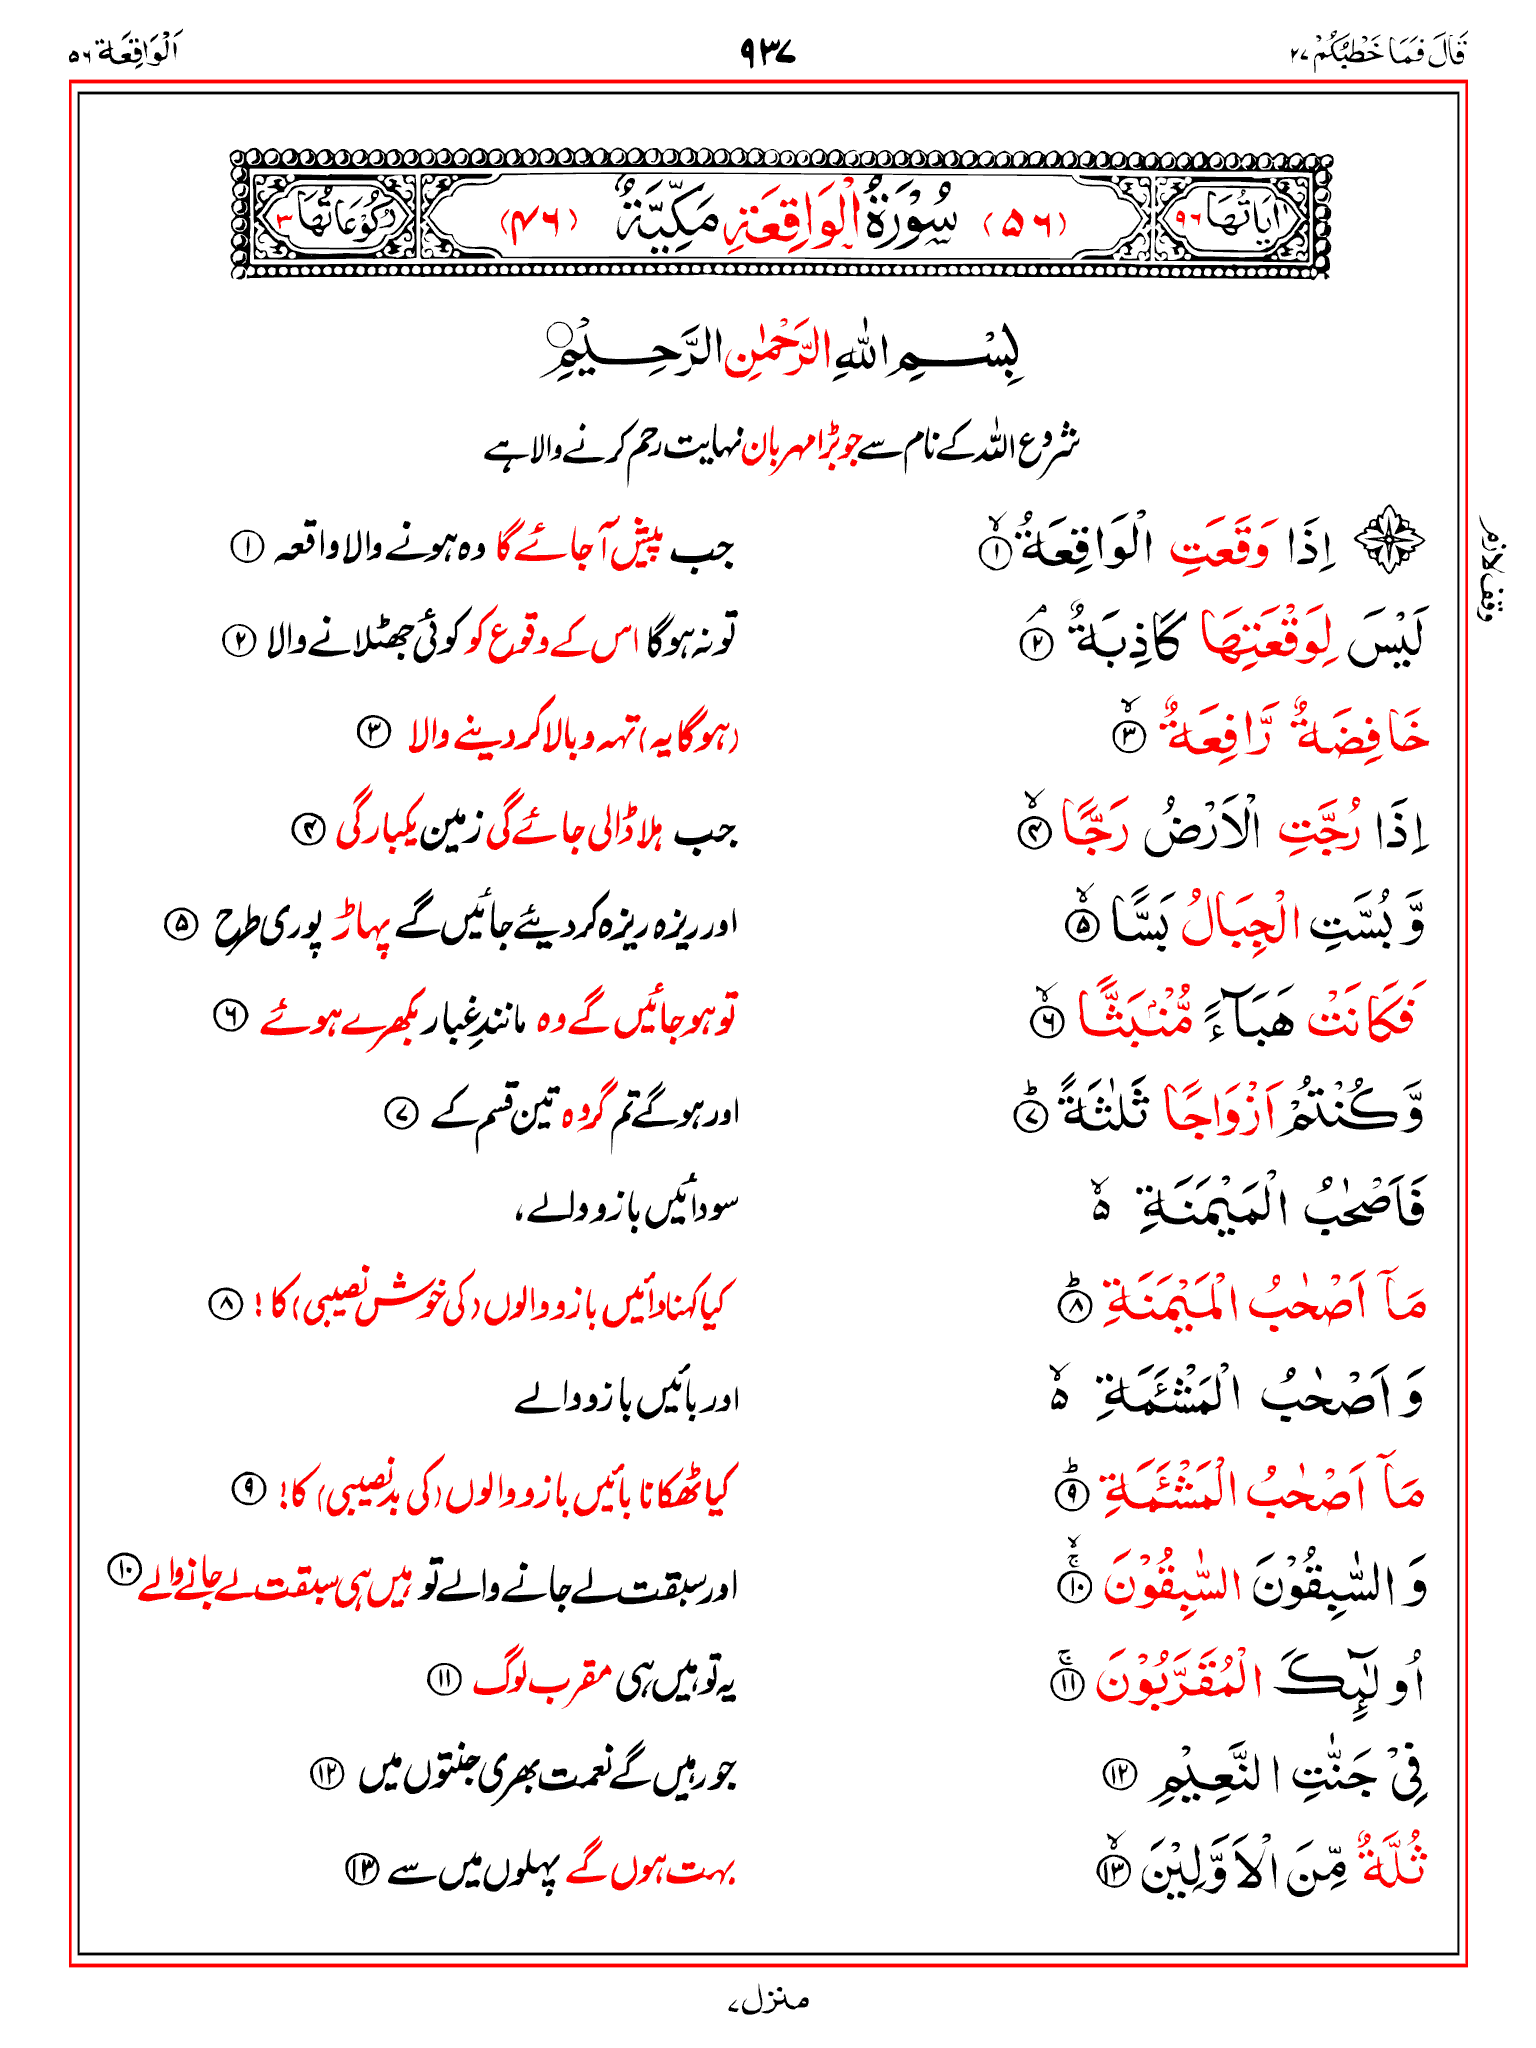 قَالَ فَمَا خَطْبُكُمْ ٢٧ ٩٣٧ اَلْوَاقِعَة ٥٦
اٰيَاتُهَا ٩٦ (٥٦) سُوْرَةُ الْوَاقِعَةِ مَكِّيَّةٌ (٤٦) رُكُوْعَاتُهَا ٣
بِسْمِ اللهِ الرَّحْمٰنِ الرَّحِيْمِ
شروع اللہ کے نام سے جو بڑا مہربان نہایت رحم کرنے والا ہے
اِذَا وَقَعَتِ الْوَاقِعَةُ ۙ ١ جب پیش آجائے گا وہ ہونے والا واقعہ ١
وقف لازم
لَيْسَ لِوَقْعَتِهَا كَاذِبَةٌ ۘ ٢ تو نہ ہوگا اس کے وقوع کو کوئی جھٹلانے والا ٢
خَافِضَةٌ رَّافِعَةٌ ۙ ٣ (ہوگا یہ) تہہ و بالا کر دینے والا ٣
اِذَا رُجَّتِ الْاَرْضُ رَجًّا ۙ ۴ جب ہلا ڈالی جائے گی زمین یکبارگی ۴
وَّ بُسَّتِ الْجِبَالُ بَسًّا ۙ ۵ اور ریزہ ریزہ کر دیئے جائیں گے پہاڑ پوری طرح ۵
فَكَانَتْ هَبَآءً مُّنْۢبَثًّا ۙ ٦ تو ہو جائیں گے وہ مانندِ غبار بکھرے ہوئے ٦
وَّ كُنْتُمْ اَزْوَاجًا ثَلٰثَةً ؕ ٧ اور ہوگے تم گروہ تین قسم کے ٧
فَاَصْحٰبُ الْمَيْمَنَةِ ۙ۵ سو دائیں بازو والے،
مَآ اَصْحٰبُ الْمَيْمَنَةِ ؕ ٨ کیا کہنا دائیں بازو والوں (کی خوش نصیبی) کا! ٨
وَ اَصْحٰبُ الْمَشْـَٔمَةِ ۙ۵ اور بائیں بازو والے
مَآ اَصْحٰبُ الْمَشْـَٔمَةِ ؕ ٩ کیا ٹھکانا بائیں بازو والوں (کی بدنصیبی) کا! ٩
وَ السّٰبِقُوْنَ السّٰبِقُوْنَ ۚۙ ١٠ اور سبقت لے جانے والے تو ہیں ہی سبقت لے جانے والے ١٠
اُولٰٓئِكَ الْمُقَرَّبُوْنَ ۚ ١١ یہ تو ہیں ہی مقرب لوگ ١١
فِيْ جَنّٰتِ النَّعِيْمِ ١٢ جو رہیں گے نعمت بھری جنتوں میں ١٢
ثُلَّةٌ مِّنَ الْاَوَّلِيْنَ ۙ ١٣ بہت ہوں گے پہلوں میں سے ١٣
منزل ٧